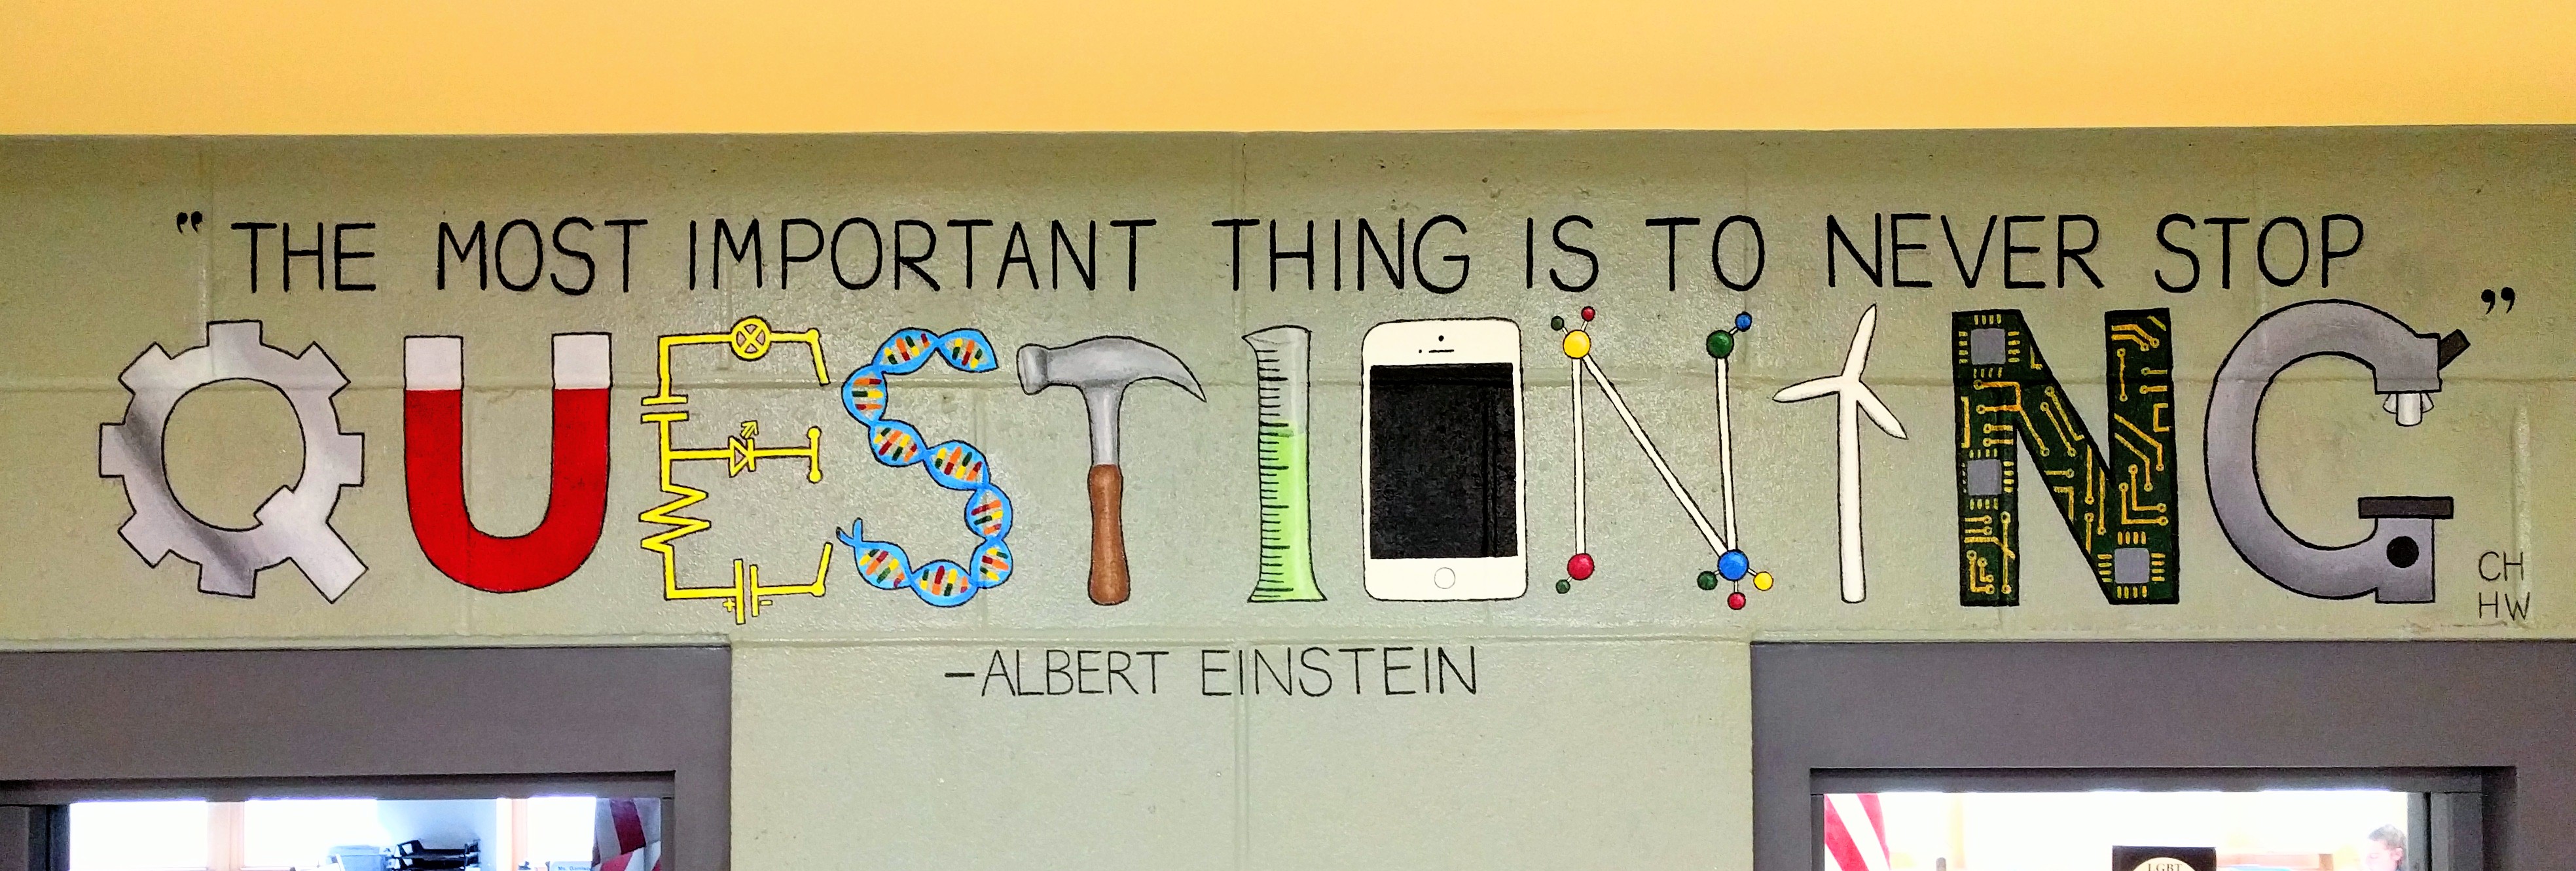 "THE MOST IMPORTANT THING IS TO NEVER STOP
QUESTIONING"
CH
HW
-ALBERT EINSTEIN
LGBT